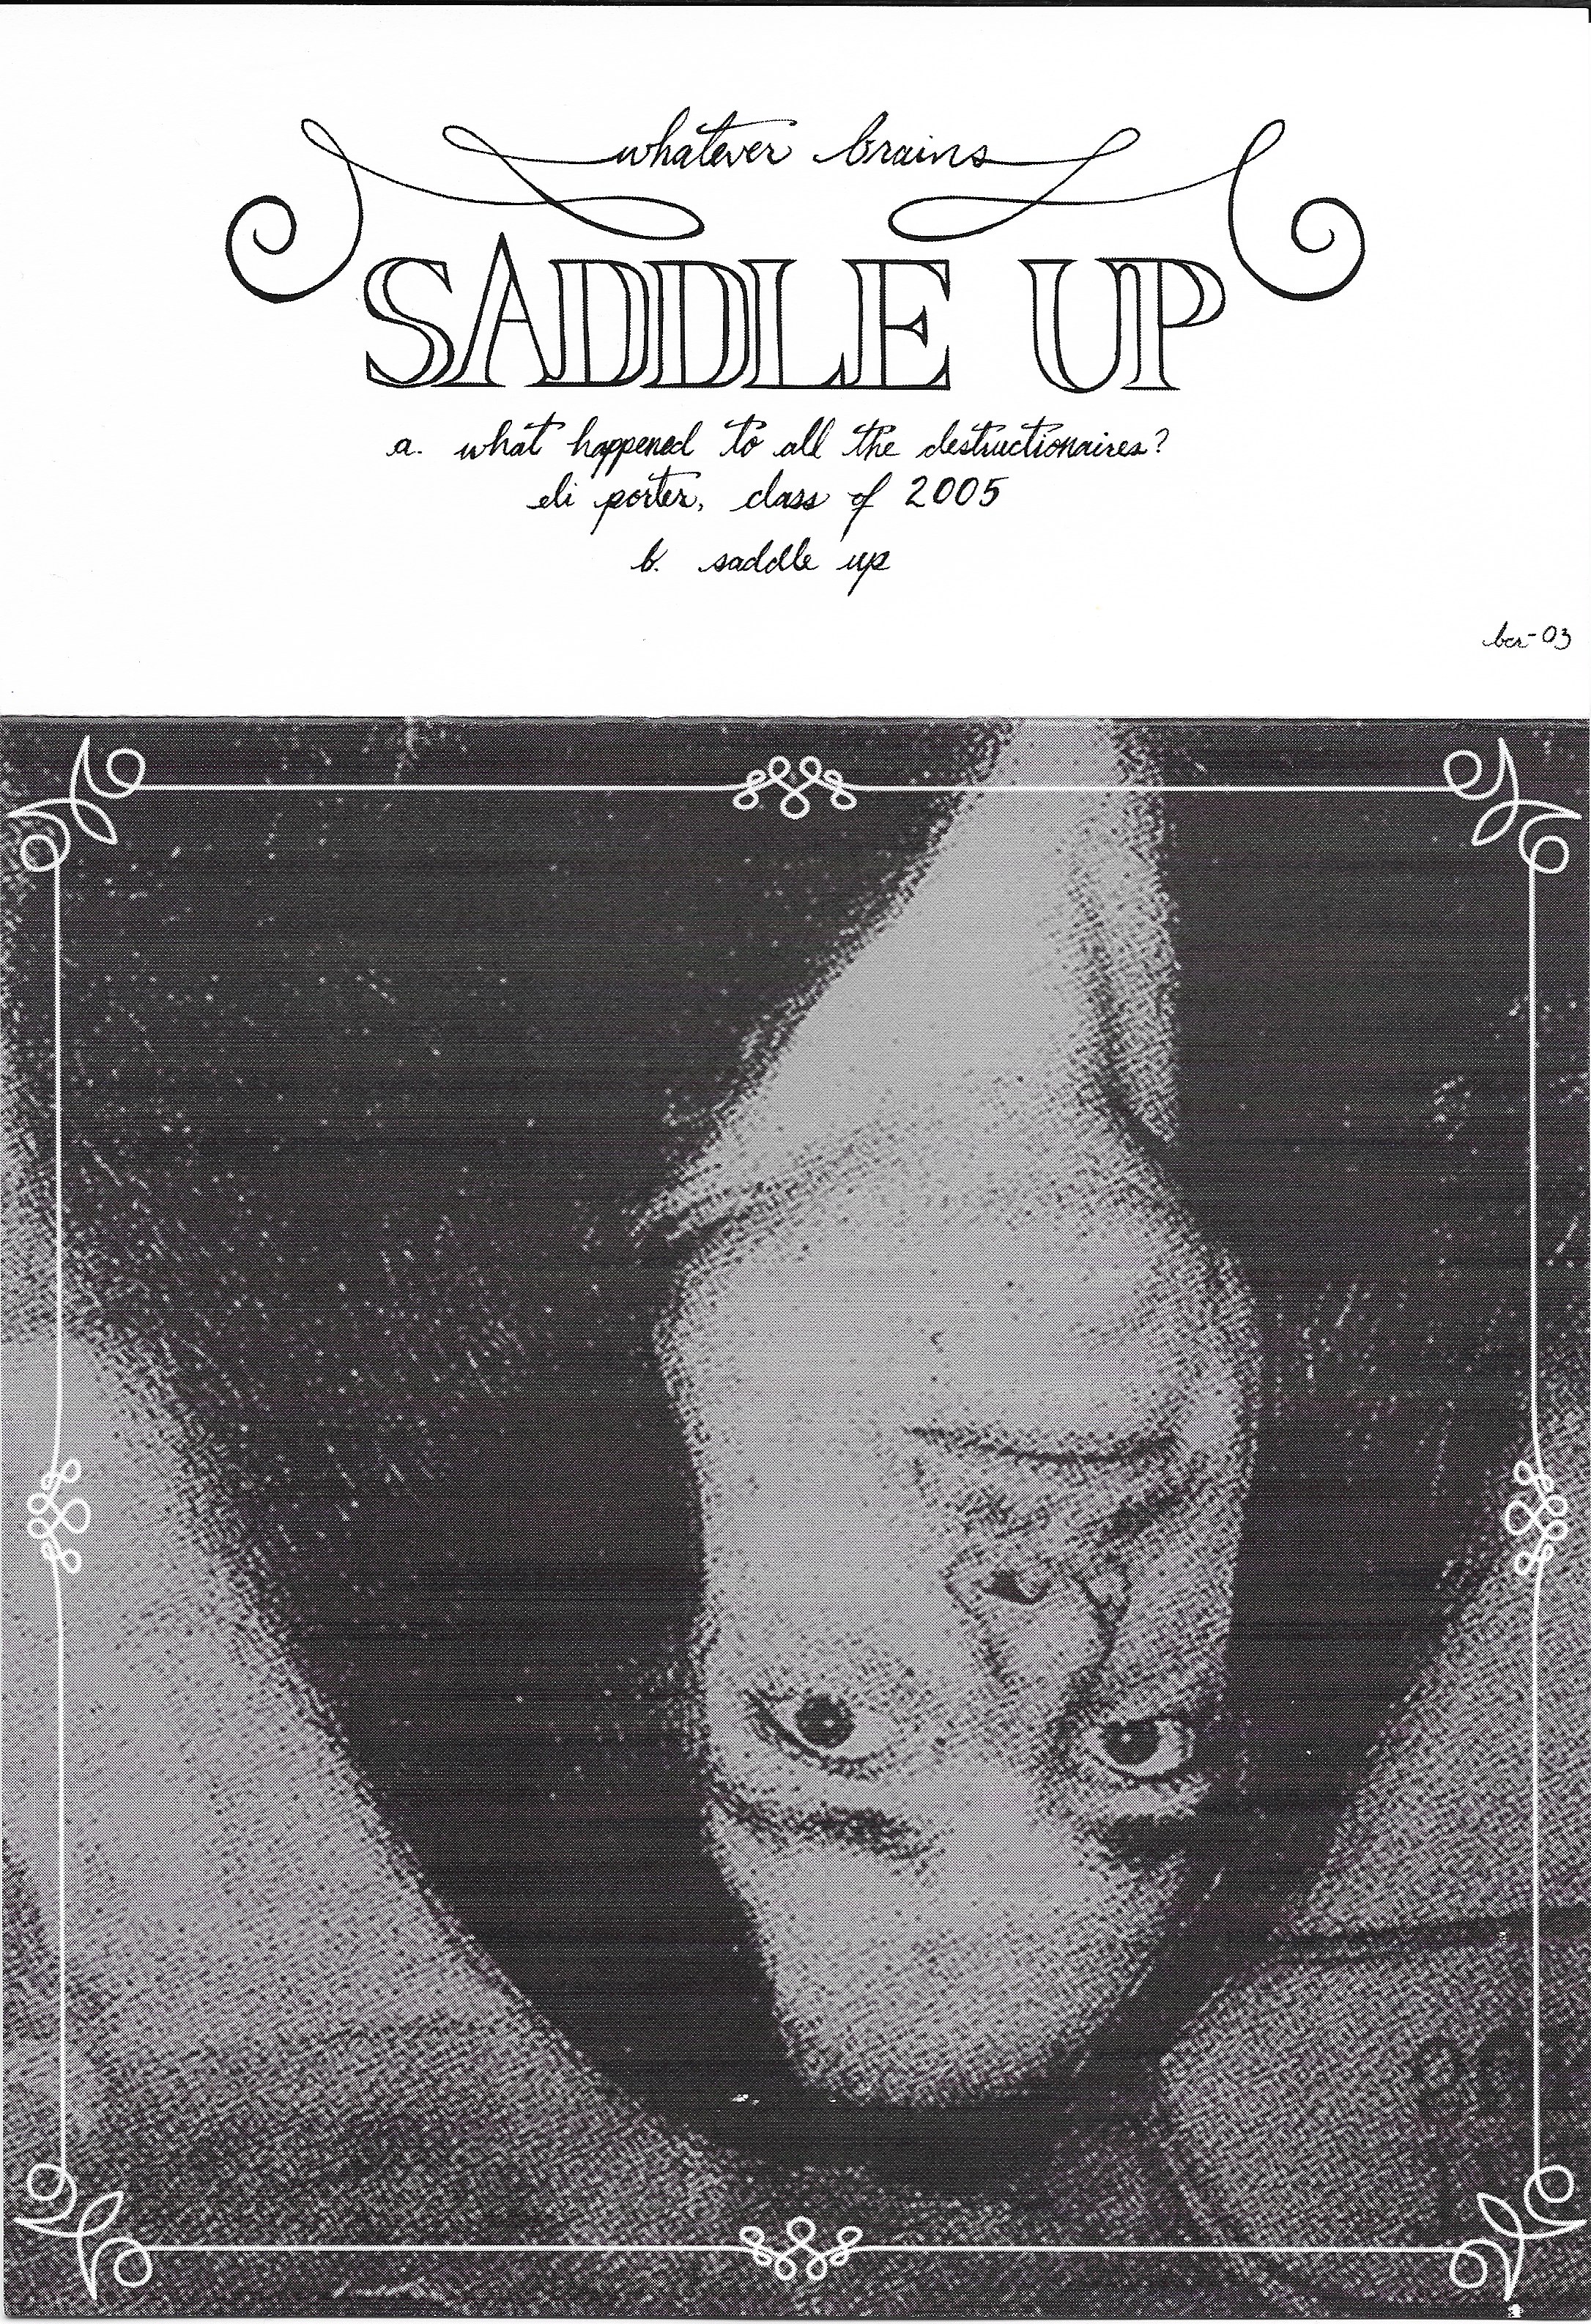 whatever brains
SADDLE UP
a. what happened to all the destructionaires?
eli porter, class of 2005
b. saddle up
bcr-03